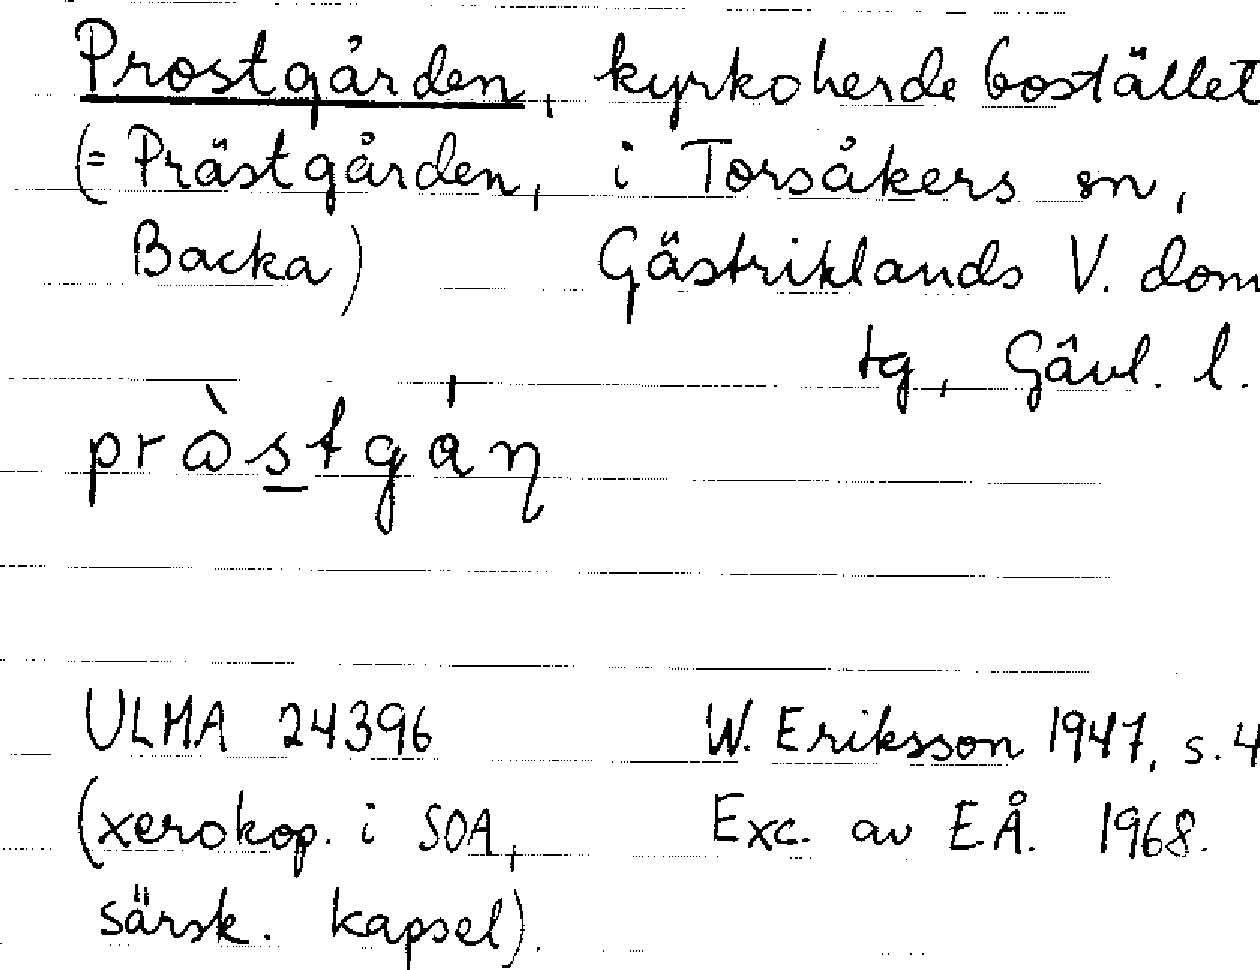 Prostgården, kyrkoherdebostället
(= Prästgården, i Torsåkers sn,
Backa) Gästriklands V. dom
tg, Gävl. l.
ULMA 24396 W. Eriksson 1947, s. 4
(xerokop. i SOA, Exc. av E.Å. 1968.
särsk. kapsel).